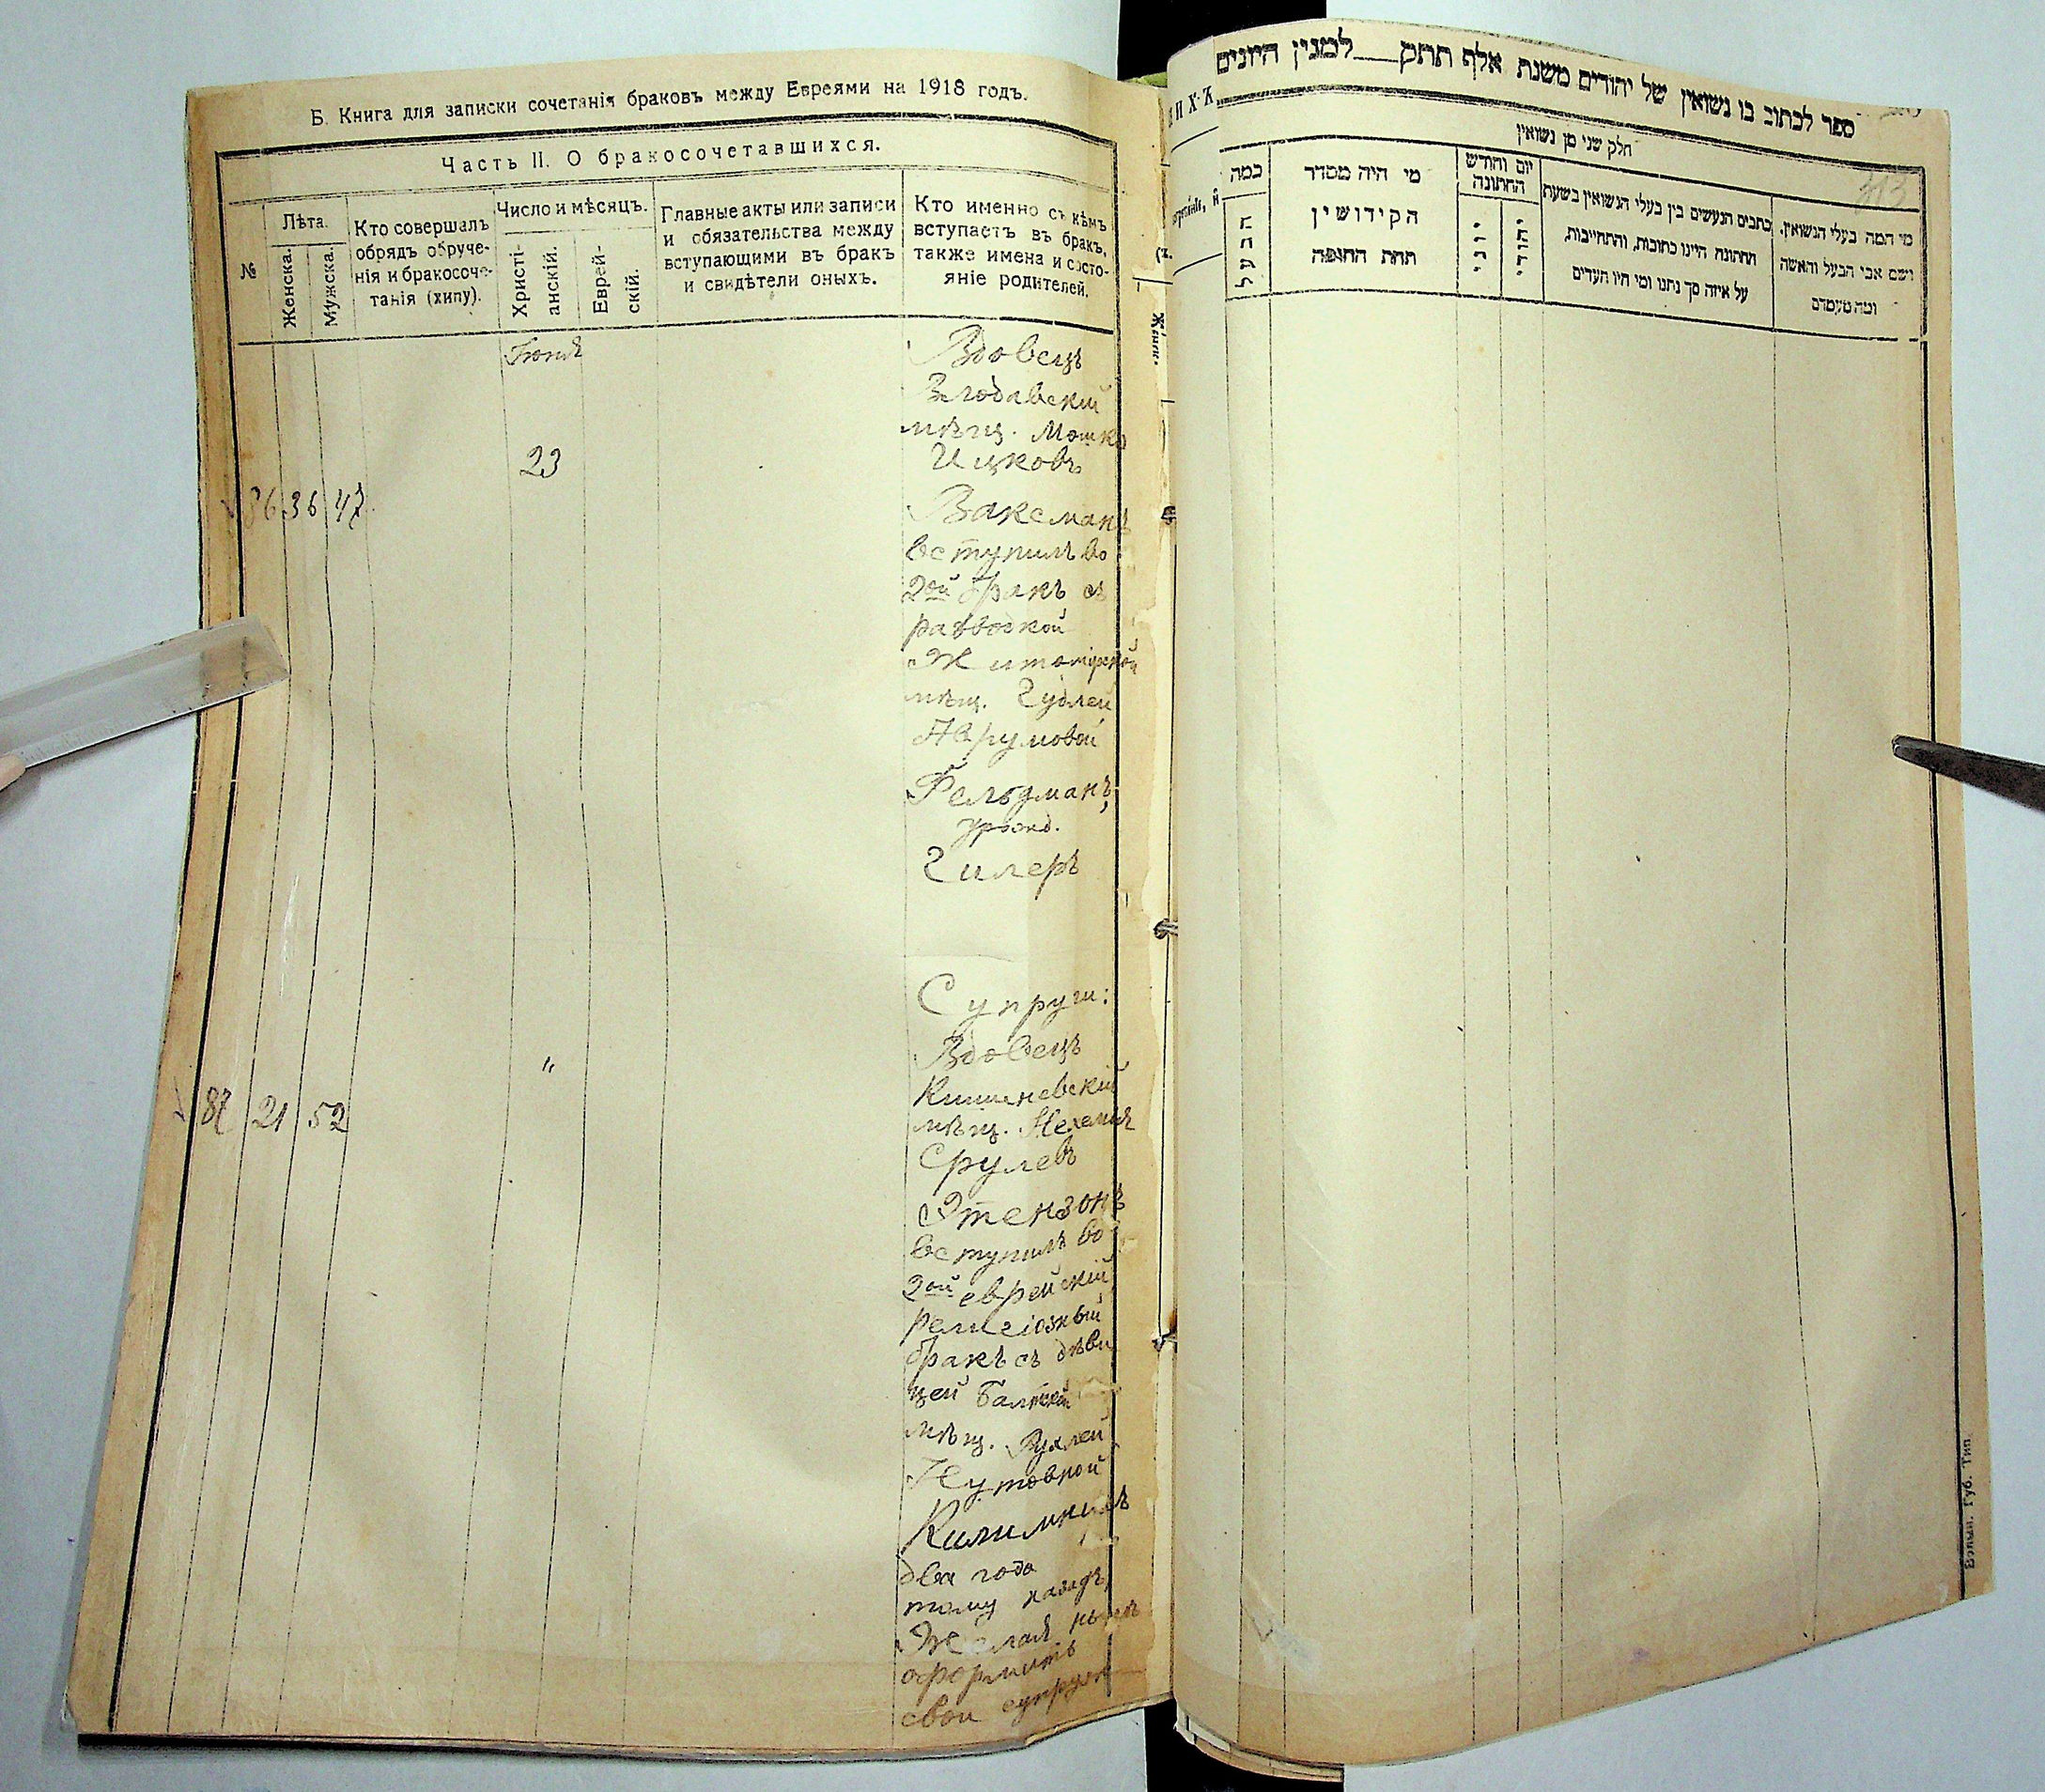 Б. Книга для записки сочетанія браковъ между Евреями на 1918 годъ.
Часть II. О бракосочетавшихся.
№
Лѣта.
Женска.
Мужска.
Кто совершалъ
обрядъ обруче-
нія и бракосоче-
танія (хипу).
Число и мѣсяцъ.
Христі-
анскій.
Еврей-
скій.
Главные акты или записи
и обязательства между
вступающими въ бракъ
и свидѣтели оныхъ.
Кто именно съ кѣмъ
вступаетъ въ бракъ,
также имена и состо-
яніе родителей.
Іюнѣ
23
86 36 47
Вдовецъ
Влодавскій
мѣщ. Мошко
Ицковъ
Ваксманъ
вступилъ во
2ой бракъ съ
разводкой
Житомірской
мѣщ. Гудлей
Аврумовой
Фельдманъ,
урожд.
Гилеръ
87 21 52
"
Супруги:
Вдовецъ
Кишиневскій
мѣщ. Нехемія
Срулевъ
Этензонъ
вступилъ во
2ой еврейскій
религіозный
бракъ съ дѣви
цей Балтской
мѣщ. Рухлей
Нутовной
Килимникъ
два года
тому назадъ,
Желая нынѣ
оформить
свои супруж
ихъ
ספר לכתוב בו נשואין של יהודים משנת אלף תתק___למנין היונים
חלק שני מן נשואין
מי המה בעלי הנשואין,
ושם אבי הבעל והאשה
ומה מעמדם
כתבים הנעשים בין בעלי הנשואין בשעת
חתונה היינו כתובות, והתחייבות,
על איזה סך נתנו ומי היו העדים
יום וחודש
החתונה
יהודי
יוני
מי היה מסדר
הקידושין
תחת החופה
כמה
הבעל
313
Волын. Губ. Тип.